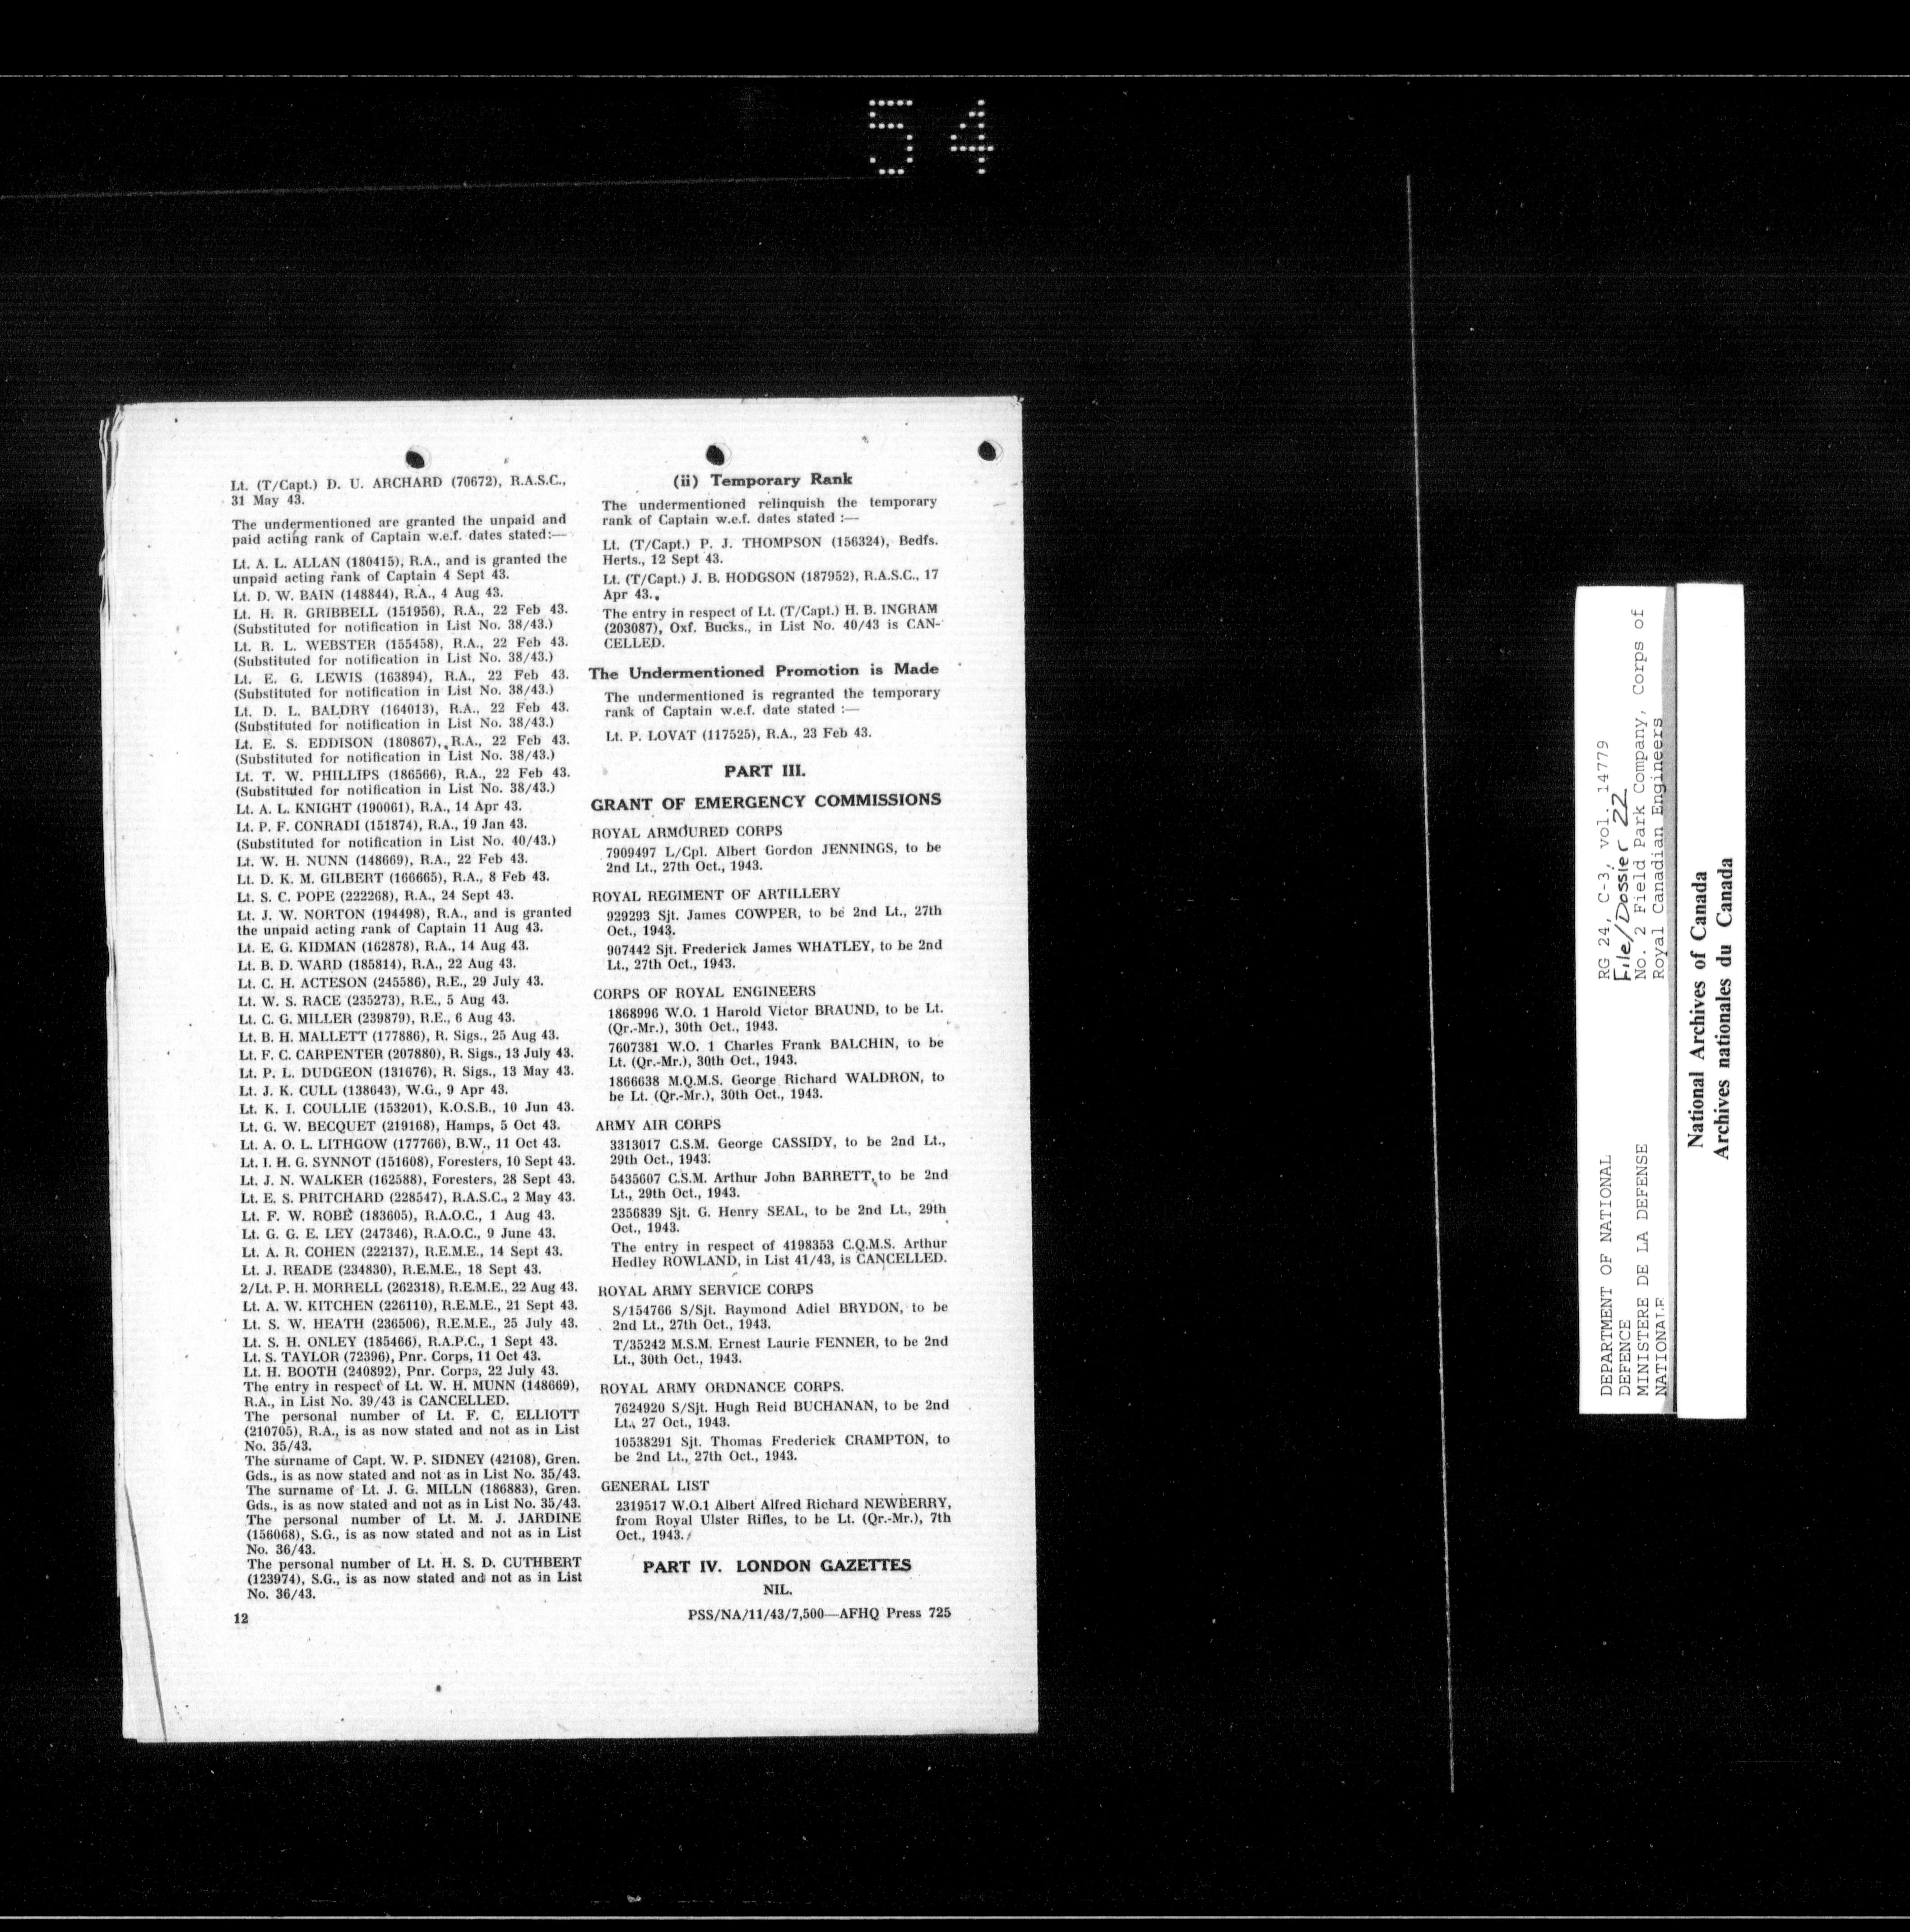 54
Lt. (T/Capt.) D. U. ARCHARD (70672), R.A.S.C.,
31 May 43.
The undermentioned are granted the unpaid and
paid acting rank of Captain w.e.f. dates stated:—
Lt. A. L. ALLAN (180415), R.A., and is granted the
unpaid acting rank of Captain 4 Sept 43.
Lt. D. W. BAIN (148844), R.A., 4 Aug 43.
Lt. H. R. GRIBBELL (151956), R.A., 22 Feb 43.
(Substituted for notification in List No. 38/43.)
Lt. R. L. WEBSTER (155458), R.A., 22 Feb 43.
(Substituted for notification in List No. 38/43.)
Lt. E. G. LEWIS (163894), R.A., 22 Feb 43.
(Substituted for notification in List No. 38/43.)
Lt. D. L. BALDRY (164013), R.A., 22 Feb 43.
(Substituted for notification in List No. 38/43.)
Lt. E. S. EDDISON (180867), R.A., 22 Feb 43.
(Substituted for notification in List No. 38/43.)
Lt. T. W. PHILLIPS (186566), R.A., 22 Feb 43.
(Substituted for notification in List No. 38/43.)
Lt. A. L. KNIGHT (190061), R.A., 14 Apr 43.
Lt. P. F. CONRADI (151874), R.A., 19 Jan 43.
(Substituted for notification in List No. 40/43.)
Lt. W. H. NUNN (148669), R.A., 22 Feb 43.
Lt. D. K. M. GILBERT (166665), R.A., 8 Feb 43.
Lt. S. C. POPE (222268), R.A., 24 Sept 43.
Lt. J. W. NORTON (194498), R.A., and is granted
the unpaid acting rank of Captain 11 Aug 43.
Lt. E. G. KIDMAN (162878), R.A., 14 Aug 43.
Lt. B. D. WARD (185814), R.A., 22 Aug 43.
Lt. C. H. ACTESON (245586), R.E., 29 July 43.
Lt. W. S. RACE (235273), R.E., 5 Aug 43.
Lt. C. G. MILLER (239879), R.E., 6 Aug 43.
Lt. B. H. MALLETT (177886), R. Sigs., 25 Aug 43.
Lt. F. C. CARPENTER (207880), R. Sigs., 13 July 43.
Lt. P. L. DUDGEON (131676), R. Sigs., 13 May 43.
Lt. J. K. CULL (138643), W.G., 9 Apr 43.
Lt. K. I. COULLIE (153201), K.O.S.B., 10 Jun 43.
Lt. G. W. BECQUET (219168), Hamps, 5 Oct 43.
Lt. A. O. L. LITHGOW (177766), B.W., 11 Oct 43.
Lt. I. H. G. SYNNOT (151608), Foresters, 10 Sept 43.
Lt. J. N. WALKER (162588), Foresters, 28 Sept 43.
Lt. E. S. PRITCHARD (228547), R.A.S.C., 2 May 43.
Lt. F. W. ROBE (183605), R.A.O.C., 1 Aug 43.
Lt. G. G. E. LEY (247346), R.A.O.C., 9 June 43.
Lt. A. R. COHEN (222137), R.E.M.E., 14 Sept 43.
Lt. J. READE (234830), R.E.M.E., 18 Sept 43.
2/Lt. P. H. MORRELL (262318), R.E.M.E., 22 Aug 43.
Lt. A. W. KITCHEN (226110), R.E.M.E., 21 Sept 43.
Lt. S. W. HEATH (236506), R.E.M.E., 25 July 43.
Lt. S. H. ONLEY (185466), R.A.P.C., 1 Sept 43.
Lt. S. TAYLOR (72396), Pnr. Corps, 11 Oct 43.
Lt. H. BOOTH (240892), Pnr. Corps, 22 July 43.
The entry in respect of Lt. W. H. MUNN (148669),
R.A., in List No. 39/43 is CANCELLED.
The personal number of Lt. F. C. ELLIOTT
(210705), R.A., is as now stated and not as in List
No. 35/43.
The surname of Capt. W. P. SIDNEY (42108), Gren.
Gds., is as now stated and not as in List No. 35/43.
The surname of Lt. J. G. MILLN (186883), Gren.
Gds., is as now stated and not as in List No. 35/43.
The personal number of Lt. M. J. JARDINE
(156068), S.G., is as now stated and not as in List
No. 36/43.
The personal number of Lt. H. S. D. CUTHBERT
(123974), S.G., is as now stated and not as in List
No. 36/43.
12
(ii) Temporary Rank
The undermentioned relinquish the temporary
rank of Captain w.e.f. dates stated :—
Lt. (T/Capt.) P. J. THOMPSON (156324), Bedfs.
Herts., 12 Sept 43.
Lt. (T/Capt.) J. B. HODGSON (187952), R.A.S.C., 17
Apr 43.
The entry in respect of Lt. (T/Capt.) H. B. INGRAM
(203087), Oxf. Bucks., in List No. 40/43 is CAN-
CELLED.
The Undermentioned Promotion is Made
The undermentioned is regranted the temporary
rank of Captain w.e.f. date stated :—
Lt. P. LOVAT (117525), R.A., 23 Feb 43.
PART III.
GRANT OF EMERGENCY COMMISSIONS
ROYAL ARMOURED CORPS
7909497 L/Cpl. Albert Gordon JENNINGS, to be
2nd Lt., 27th Oct., 1943.
ROYAL REGIMENT OF ARTILLERY
929293 Sjt. James COWPER, to be 2nd Lt., 27th
Oct., 1943.
907442 Sjt. Frederick James WHATLEY, to be 2nd
Lt., 27th Oct., 1943.
CORPS OF ROYAL ENGINEERS
1868996 W.O. 1 Harold Victor BRAUND, to be Lt.
(Qr.-Mr.), 30th Oct., 1943.
7607381 W.O. 1 Charles Frank BALCHIN, to be
Lt. (Qr.-Mr.), 30th Oct., 1943.
1866638 M.Q.M.S. George Richard WALDRON, to
be Lt. (Qr.-Mr.), 30th Oct., 1943.
ARMY AIR CORPS
3313017 C.S.M. George CASSIDY, to be 2nd Lt.,
29th Oct., 1943.
5435607 C.S.M. Arthur John BARRETT, to be 2nd
Lt., 29th Oct., 1943.
2356839 Sjt. G. Henry SEAL, to be 2nd Lt., 29th
Oct., 1943.
The entry in respect of 4198353 C.Q.M.S. Arthur
Hedley ROWLAND, in List 41/43, is CANCELLED.
ROYAL ARMY SERVICE CORPS
S/154766 S/Sjt. Raymond Adiel BRYDON, to be
2nd Lt., 27th Oct., 1943.
T/35242 M.S.M. Ernest Laurie FENNER, to be 2nd
Lt., 30th Oct., 1943.
ROYAL ARMY ORDNANCE CORPS.
7624920 S/Sjt. Hugh Reid BUCHANAN, to be 2nd
Lt., 27 Oct., 1943.
10538291 Sjt. Thomas Frederick CRAMPTON, to
be 2nd Lt., 27th Oct., 1943.
GENERAL LIST
2319517 W.O.1 Albert Alfred Richard NEWBERRY,
from Royal Ulster Rifles, to be Lt. (Qr.-Mr.), 7th
Oct., 1943.
PART IV. LONDON GAZETTES
NIL.
PSS/NA/11/43/7,500—AFHQ Press 725
DEPARTMENT OF NATIONAL
DEFENCE
MINISTERE DE LA DEFENSE
NATIONALE
RG 24, C-3, vol. 14779
File/Dossier 22
No. 2 Field Park Company, Corps of
Royal Canadian Engineers
National Archives of Canada
Archives nationales du Canada